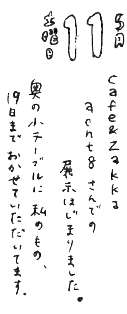 5月
11
土曜日
cafe&zakka
acht8さんでの
展示はじまりました。
奥の小テーブルに私のもの、
19日までおかせていただいてます。